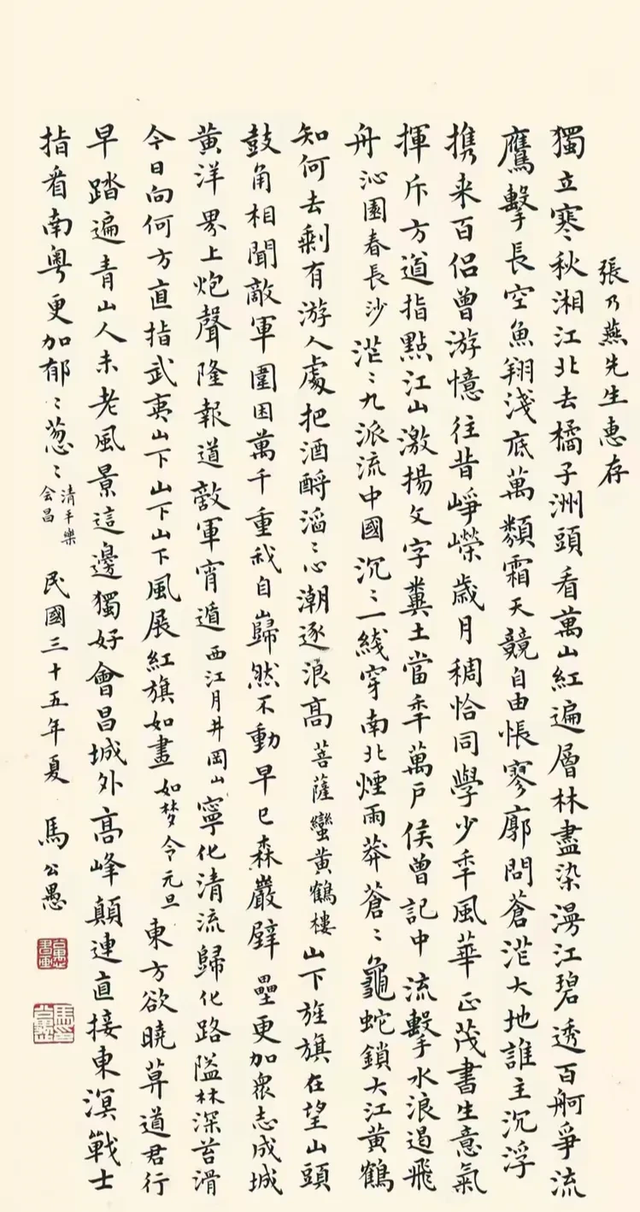 張乃燕先生惠存
獨立寒秋湘江北去橘子洲頭看萬山紅遍層林盡染漫江碧透百舸爭流
鷹擊長空魚翔淺底萬類霜天競自由悵寥廓問蒼茫大地誰主沉浮
携来百侣曾游憶往昔崢嶸歲月稠恰同學少年風華正茂書生意氣
揮斥方遒指點江山激揚文字糞土當年萬戶侯曾記中流擊水浪遏飛
舟沁園春長沙茫〻九派流中國沉〻一綫穿南北煙雨莽蒼〻龜蛇鎖大江黃鶴
知何去剩有游人處把酒酹滔〻心潮逐浪高菩薩蠻黃鶴樓山下旌旗在望山頭
鼓角相聞敵軍圍困萬千重我自巋然不動早已森嚴壁壘更加衆志成城
黃洋界上炮聲隆報道敵軍宵遁西江月井岡山寧化清流歸化路隘林深苔滑
今日向何方直指武夷山下山下山下風展紅旗如畫如梦令元旦東方欲曉莫道君行
早踏遍青山人未老風景這邊獨好會昌城外高峰顛連直接東溟戰士
指看南粵更加郁〻葱〻清平樂会昌民國三十五年夏馬公愚